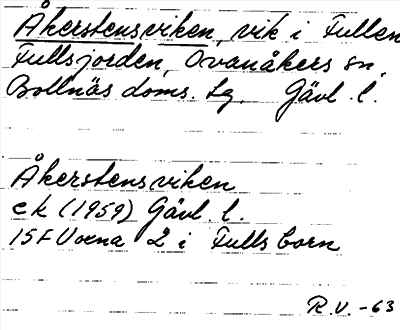 Åkerstensviken, vik i Fullen
Fullsjorden, Ovanåkers sn,
Bollnäs doms. tg. Gävl. l.
Åkerstensviken
ek (1959) Gävl. l.
15F Voxna 2 i Fullsborn
R.V. -63